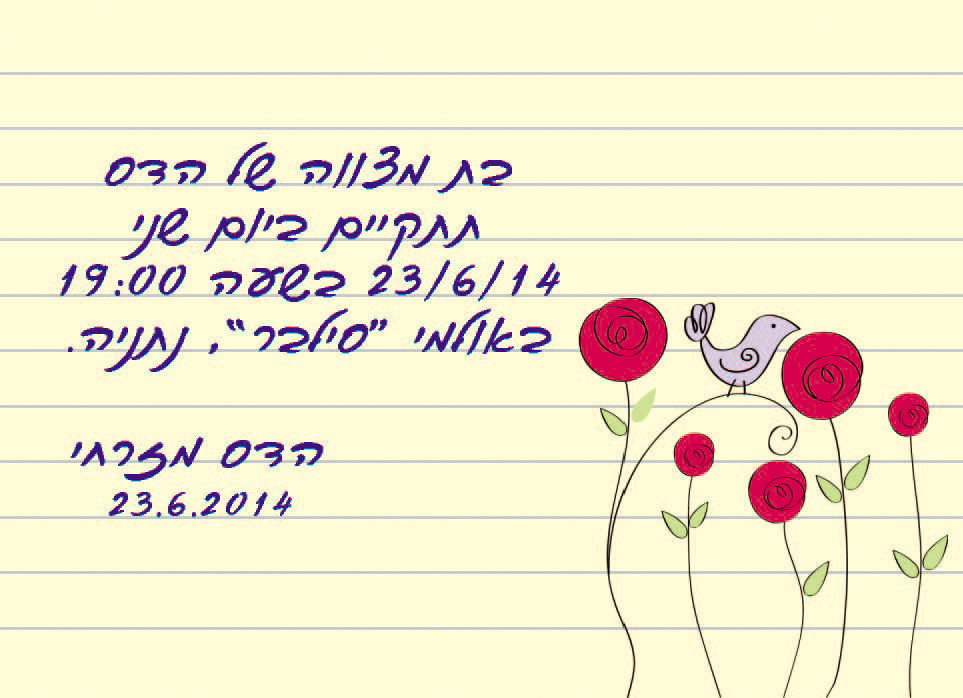 בת מצווה של הדס
תתקיים ביום שני
23/6/14 בשעה 19:00
באולמי "סילבר", נתניה.
הדס מזרחי
23.6.2014